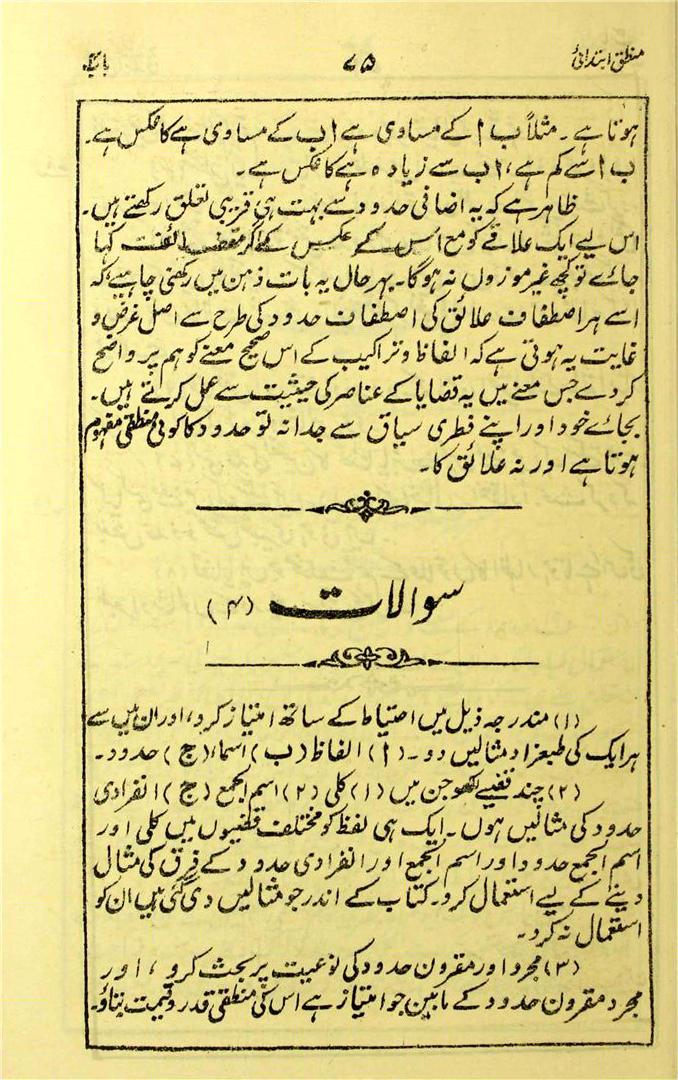 منطق ابتدائی
۷۵
باب
ہوتا ہے۔ مثلاً ب ا کے مساوی ہے اب کے مساوی ہے کا عکس ہے۔
ب ا سے کم ہے، اب سے زیادہ ہے کا عکس ہے۔
ظاہر ہے کہ یہ اضافی حدود سے بہت ہی قریبی تعلق رکھتے ہیں۔
اس لیے ایک علاقے کو مع اس کے عکس کے اگر کہا
جائے تو کچھ غیر موزوں نہ ہوگا۔ بہر حال یہ بات ذہن میں رکھنی چاہیے کہ
اسے ہر اصطفاف علائق کی اصطفاف حدود کی طرح سے اصل غرض و
غایت یہ ہوتی ہے کہ الفاظ و تراکیب کے اس صحیح معنے کو ہم پر واضح
کردے جس معنے میں یہ قضایا کے عناصر کی حیثیت سے عمل کرتے ہیں۔
بجائے خود اور اپنے فطری سیاق سے جدا نہ تو حدود کا کوئی منطقی مفہوم
ہوتا ہے اور نہ علائق کا۔
سوالات (۴)
(۱) مندرجہ ذیل میں احتیاط کے ساتھ امتیاز کرو، اور ان میں سے
ہر ایک کی طبعزاد مثالیں دو۔ (ا) الفاظ (ب) اسماء (ج) حدود۔
(۲) چند قضیے لکھو جن میں (۱) کلی (۲) اسم الجمع (ج) انفرادی
حدود کی مثالیں ہوں۔ ایک ہی لفظ کو مختلف قضیوں میں کلی اور
اسم الجمع حدود اور اسم الجمع اور انفرادی حدود کے فرق کی مثال
دینے کے لیے استعمال کرو۔ کتاب کے اندر جو مثالیں دی گئی ہیں ان کو
استعمال نہ کرو۔
(۳) مجرد اور مقرون حدود کی نوعیت پر بحث کرو، اور
مجرد مقرون حدود کے مابین جو امتیاز ہے اس کی منطقی قدر و قیمت بتاؤ۔